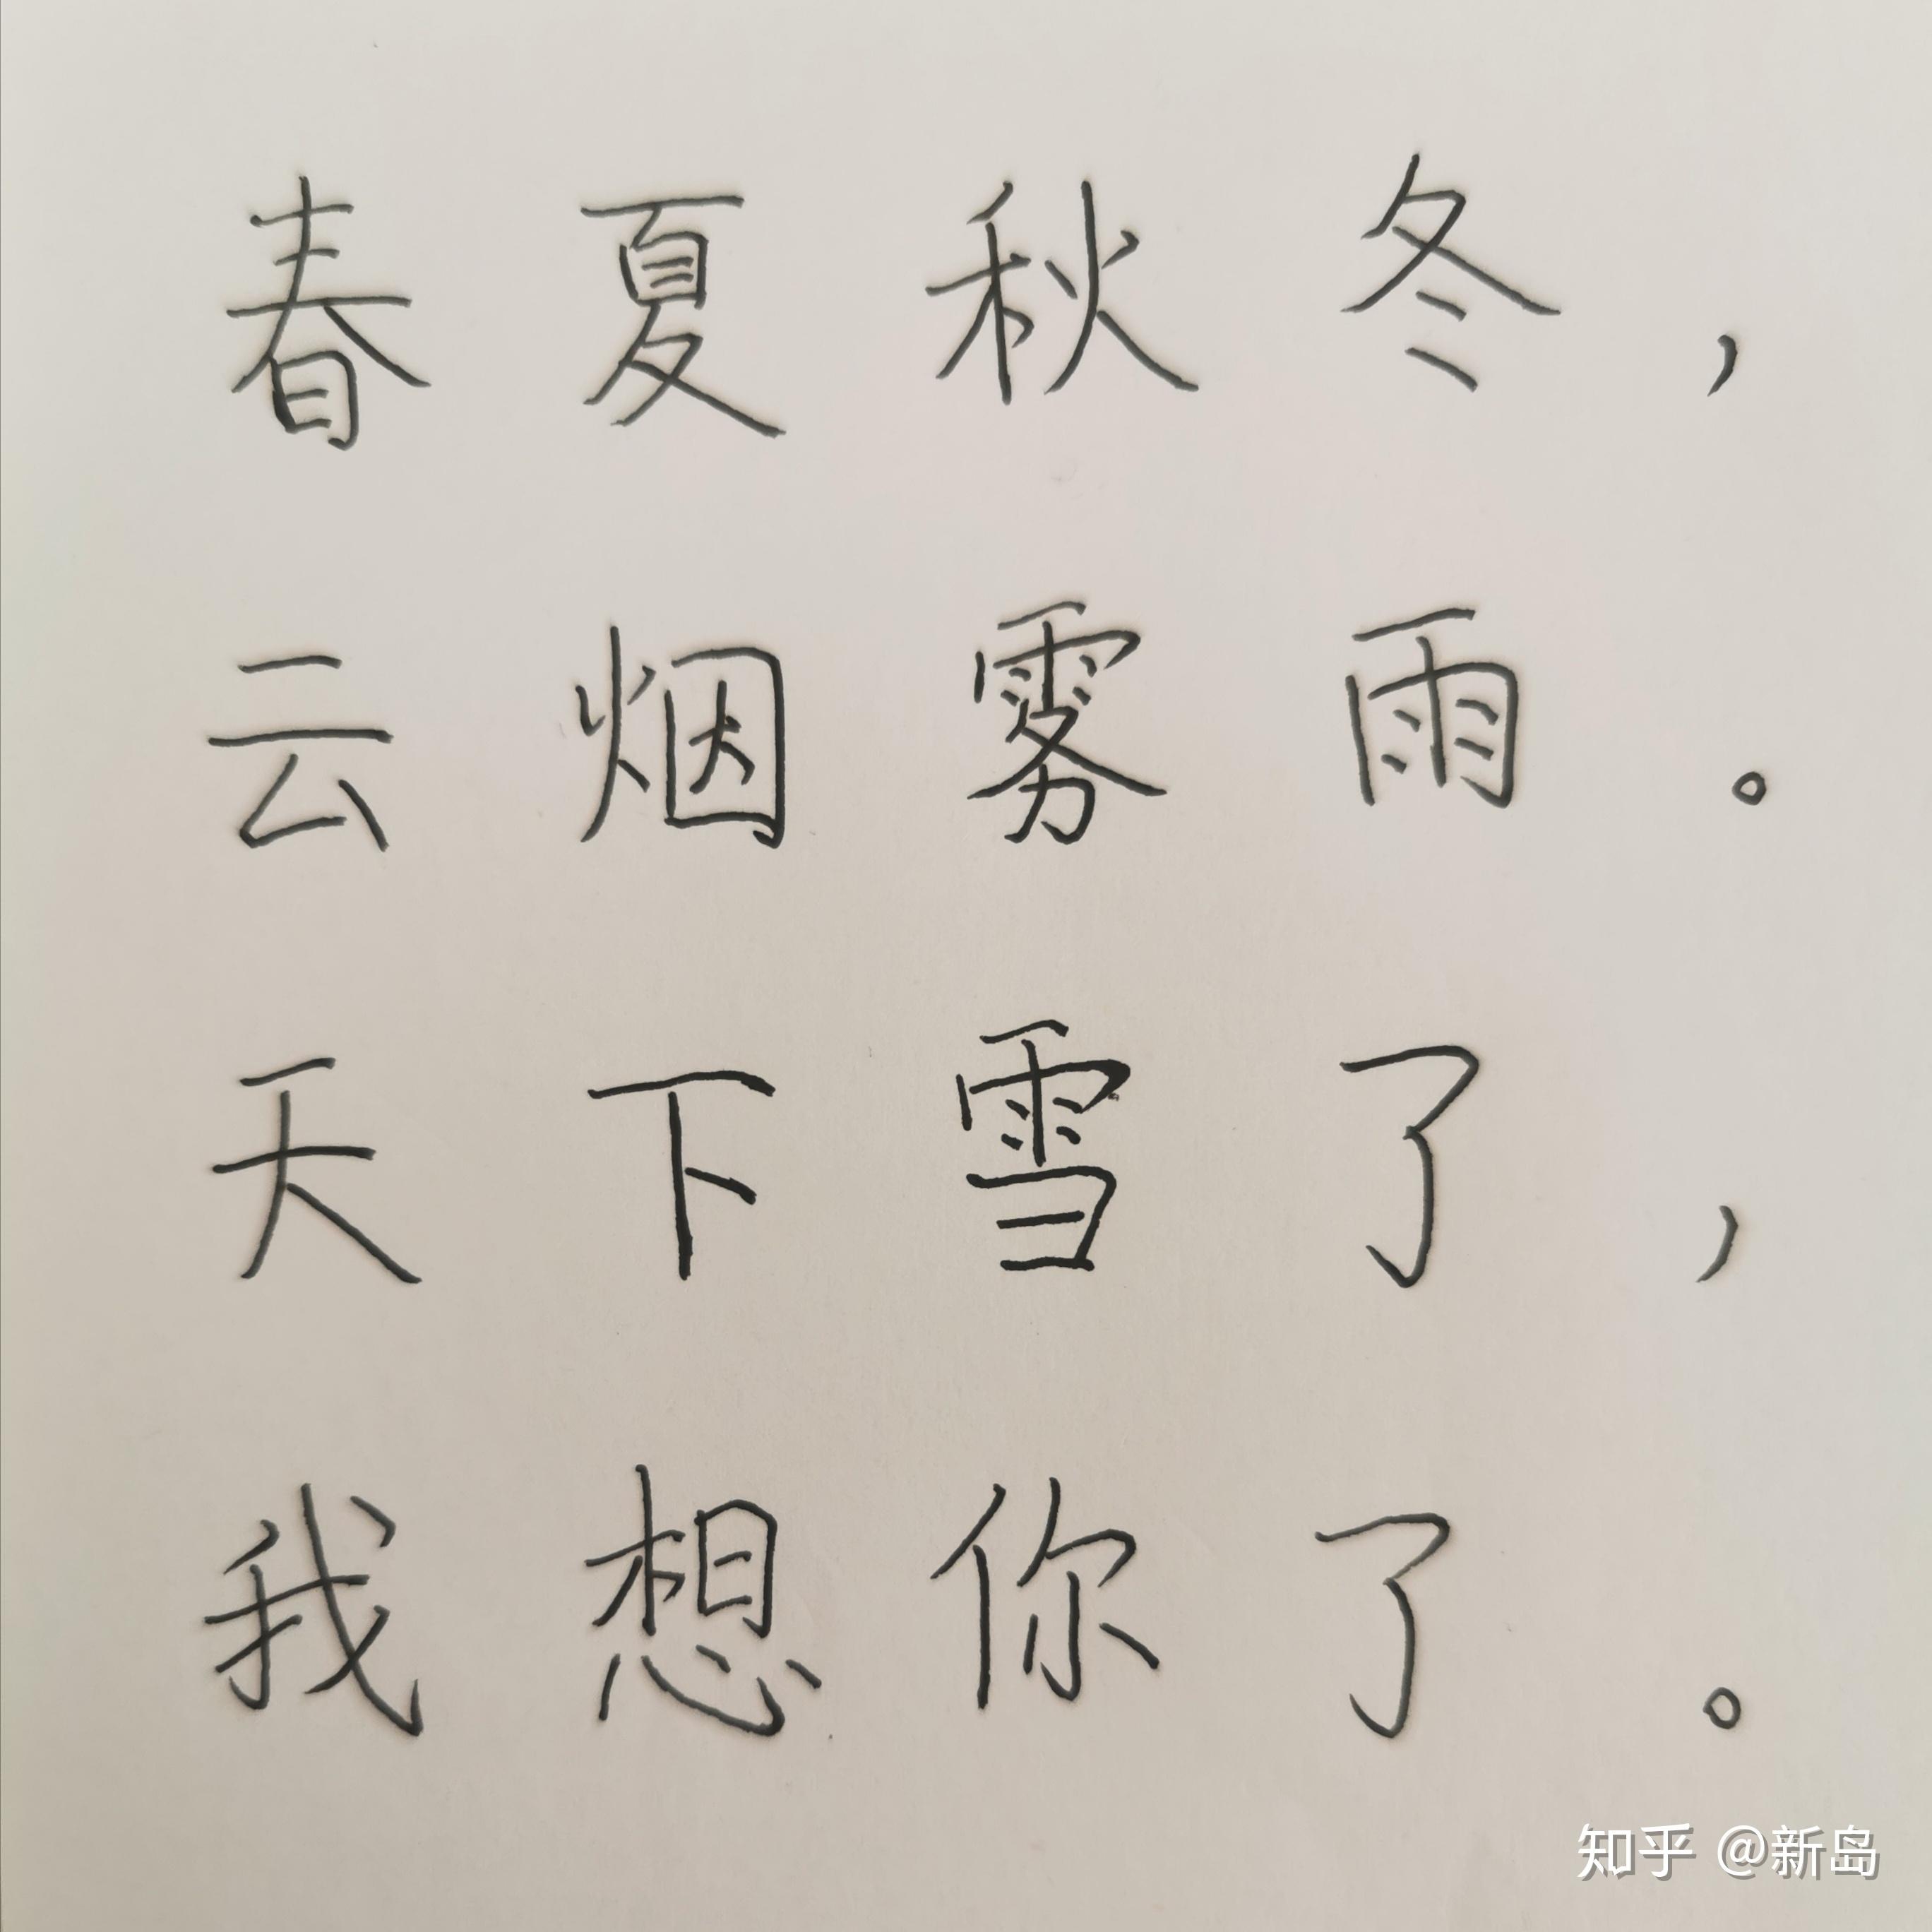 春夏秋冬，
云烟雾雨。
天下雪了，
我想你了。
知乎 @新岛